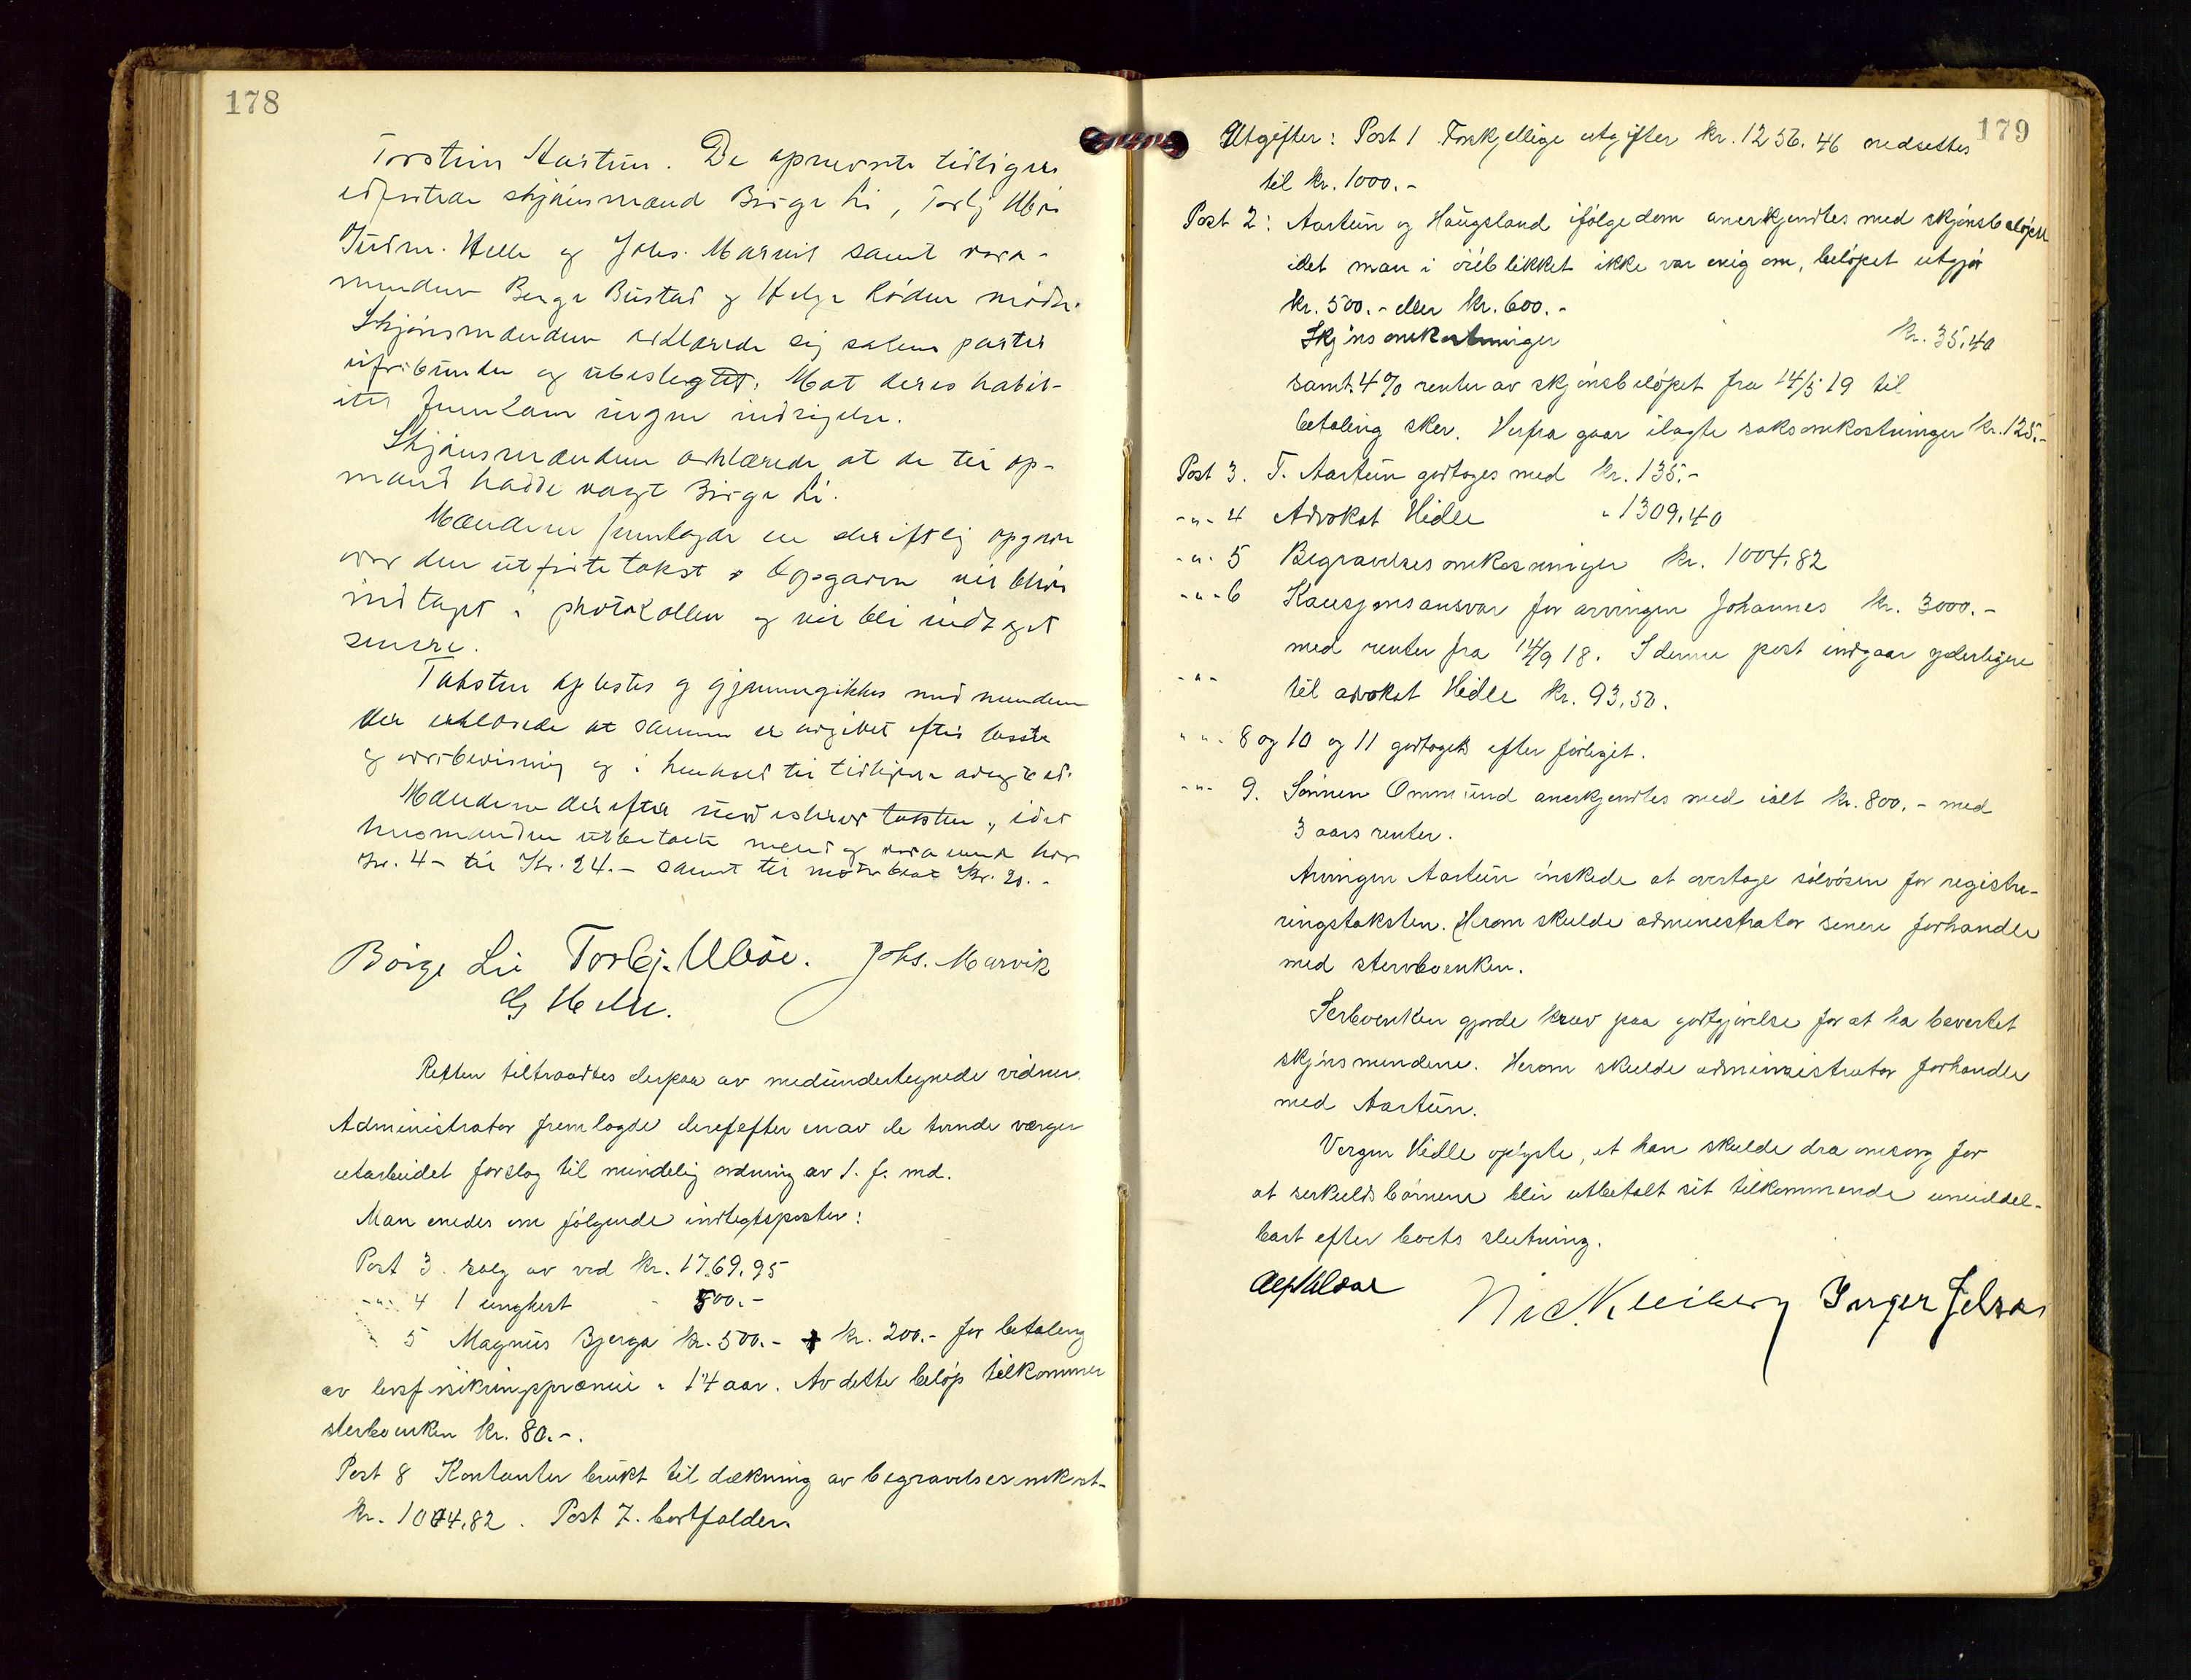 178
Torstein Aartun. De opnevnte tidligere
edfæstede skjønsmænd Børge Li, Torbj Ubøe
Gudm. Helle og Johs. Marvik samt vara-
mendene Berge Bustad og Helge Løden møder.
Skjønsmændene erklærede sig salene parter
uforbunden og ubeslegtet. Mot deres habili-
itet fremkom ingen indsigelse.
Skjønsmændene erklærede at de til op-
mand hadde valgt Børge Li.
Mændene fremlagde en skriftlig opgave
over den utførte takst. Opgaven vil blive
indtaget i protokollen og vil bli indtaget
senere.
Taksten oplestes og gjennemgikkes med mendene
der erklærede at samme er avgivet efter beste
og overbevisning og i henhold til tidligere avlagt ed.
Mændene derefter underskrev taksten, idet
kr. 4.- til Kr. 24.- samt til motorbaat Kr. 20.-
Børge Li Torbj. Ubøe. Johs. Marvik
G Helle.
Retten tiltraadtes derpaa av medundertegnede vidner.
Administrator fremlagde derefefter en av de tvende værger
utarbeidet forslag til mindelig ordning av 1. f. md.
Man enedes om følgende indtegtsposter:
Post 3. salg av ved kr. 1769.95
-"- 4 1 unghest - 500.-
5 Magnus Bjerga kr. 500.- + kr. 200.- for betaling
av livsforsikringspræmie i 14 aar. Av dette beløp tilkommer
sterboenken kr. 80.-.
Post 8 Kontanter brukt til dækning av begravelsesomkost-
kr. 1004.82. Post 7. bortfalder.
179
Utgifter: Post 1 Forskjellige utgifter kr. 1256.46 nedsettes
til kr. 1000.-
Post 2: Aartun og Haugsland ifølge dom anerkjendtes med skjønsbeløpet
idet man i øieblikket ikke var enig om, beløpet utgjør
kr. 500.- eller kr. 600.-
Skjønsomkostninger kr. 35.40
samt 4% renter av skjønsbeløpet fra 14/5 19 til
betaling sker. Herfra gaar ilagte saksomkostninger kr. 125.-
Post 3. T. Aartun godtages med kr. 135.-
-"- 4 Advokat Hidle " 1309.40
-"- 5 Begravelsesomkosninger kr. 1004.82
-"- 6 Kausjonsansvar for arvingen Johannes kr. 3000.-
med renter fra 14/9 18. I denne post indgaar yderligere
-"- til advokat Hidle kr. 93.50.
-"- 8 og 10 og 11 godtoges efter forliget.
-"- 9. Sønnen Ommund anerkjendtes med ialt kr. 800.- med
3 aars renter.
Arvingen Aartun ønskede at overtage sølvøsen for registre-
ringstaksten. Herom skulde administrator senere forhandle
med stervboenken.
Serboenken gjorde krav paa godtgjørelse for at ha bevertet
skjønsmendene. Herom skulde administrator forhandle
med Aartun.
Vergen Hidle oplyste, at han skulde dra omsorg for
at serkuldsbørnene blir utbetalt sit tilkommende umiddel-
bart efter boets slutning.
Nic. Kleiberg Inger Jelsa